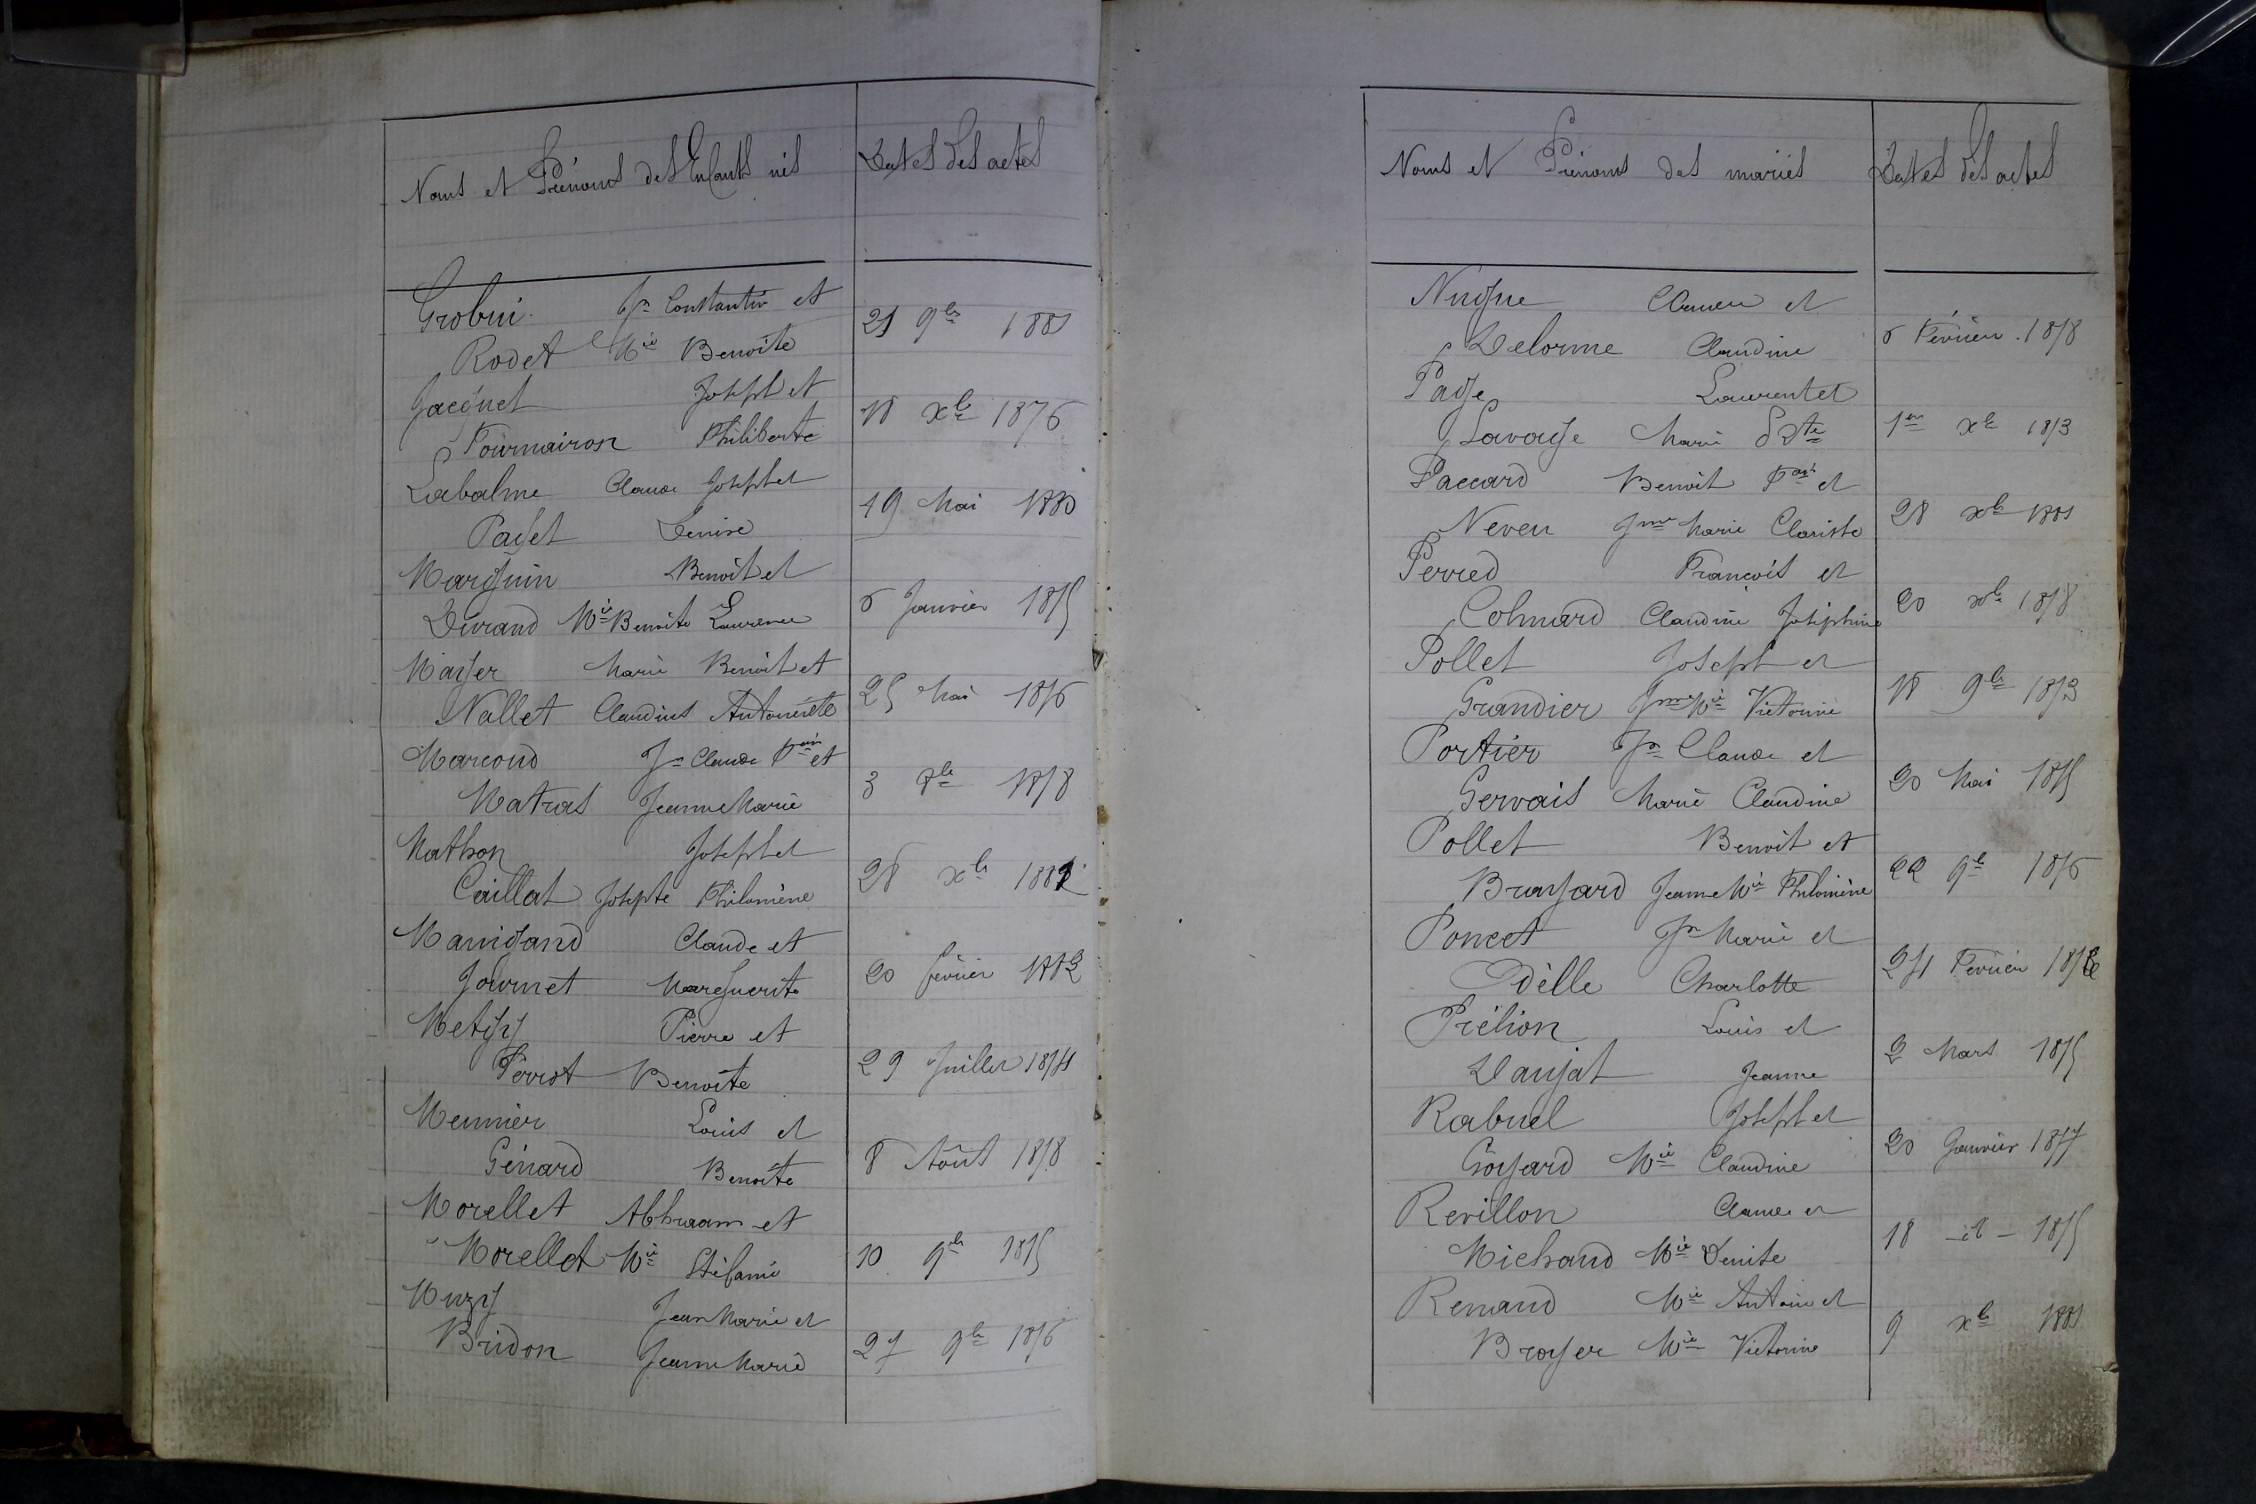 Noms et Prénoms des Enfants nés
Dates des actes
Grobin Jn Constantin et
21 9bre 1881
Rodet Mie Benoîte
Jacquet Joseph et
18 Xbre 1876
Fournairon Philiberte
Labalme Claude Joseph et
19 Mai 1880
Paget Denise
Marguin Benoît et
6 Janvier 1875
Durand Mie Benoite Laurence
Mayer Marie Benoît et
25 Mai 1876
Nallet Claudine Antoinette
Marcoud Jn Claude Fçois et
3 8bre 1878
Matras Jeanne Marie
Mathon Joseph et
28 Xbre 1882
Caillat Josepte Philomène
Manigand Claude et
20 février 1882
Journet Marguerite
Metzy Pierre et
29 Juillet 1874
Perrot Benoîte
Meunier Louis et
8 Août 1878
Génard Benoîte
Morellet Abhraam et
10 9bre 1875
Morellet Mie Stéfanie
Muzy Jean Marie et
27 9bre 1876
Bridon Jeanne Marie
Noms et Prénoms des mariés
Dates des actes
Nugue Claude et
6 Février 1878
Delorme Claudine
Page Laurent et
1er Xbre 1873
Savoye Marie
Paccard Benoit Fçois et
28 Xbre 1881
Neveu Jnne Marie Clariste
Perred François et
20 Xbre 1878
Colmard Claudine Joséphine
Pollet Joseph et
18 9bre 1873
Grandier Jnne Mie Victorine
Portier Jn Claude et
20 Mai 1875
Gervais Marie Claudine
Pollet Benoît et
22 9bre 1876
Brayard Jeanne Mie Philomène
Poncet Jn Marie et
24 Février 187
Dèlle Charlotte
Prélion Louis et
2 Mars 1875
Danjat Jeanne
Rabuel Joseph et
20 Janvier 1877
Goyard Mie Claudine
Revillon Claude et
18 – id – 1875
Michaud Mie Denise
Renaud Mie Antoine et
9 Xbre 1881
Broyer Mie Victorine